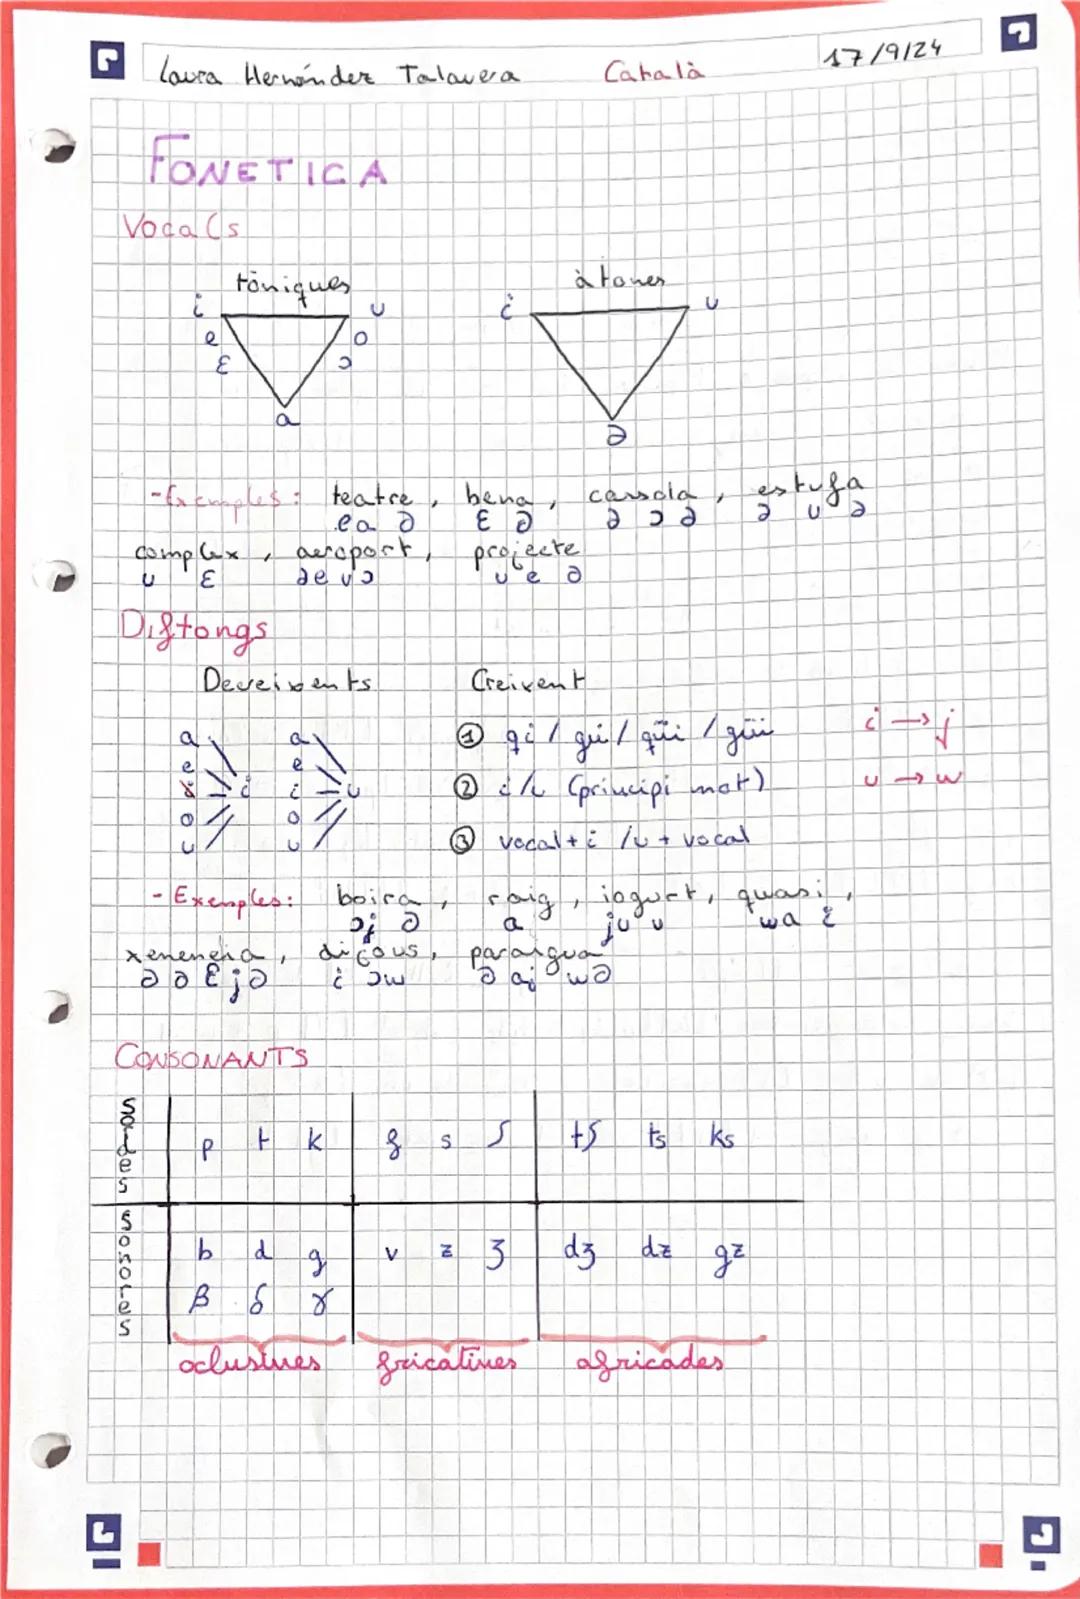 Laura Hernández Talavera Català 17/9/24
FONETICA
Vocals
tòniques àtones
i u i u
e o
ɛ ɔ
a
ə
-Exemples: teatre, bena, cassola, estufa
e a ə ɛ ə ə ɔ ə ə u ə
complex, aeroport, projecte
u ɛ ə e u ɔ u e ə
Diftongs
Decreixents Creixent
① qi / gui / qüi / güi i → j
a a
e e
i i i u
② i/u (principi mot) u → w
o o
u u
③ vocal + i /u + vocal
- Exemples: boira, raig, iogurt, quasi,
ɔj ə a ju u wa i
xeneneia, dijous, paraigua
ə ə ɛ j ə i ɔw ə aj wə
CONSONANTS
Sordes p t k f s ʃ tʃ ts ks
Sonores b d g v z ʒ dʒ dz gz
β δ γ
oclusives fricatives africades